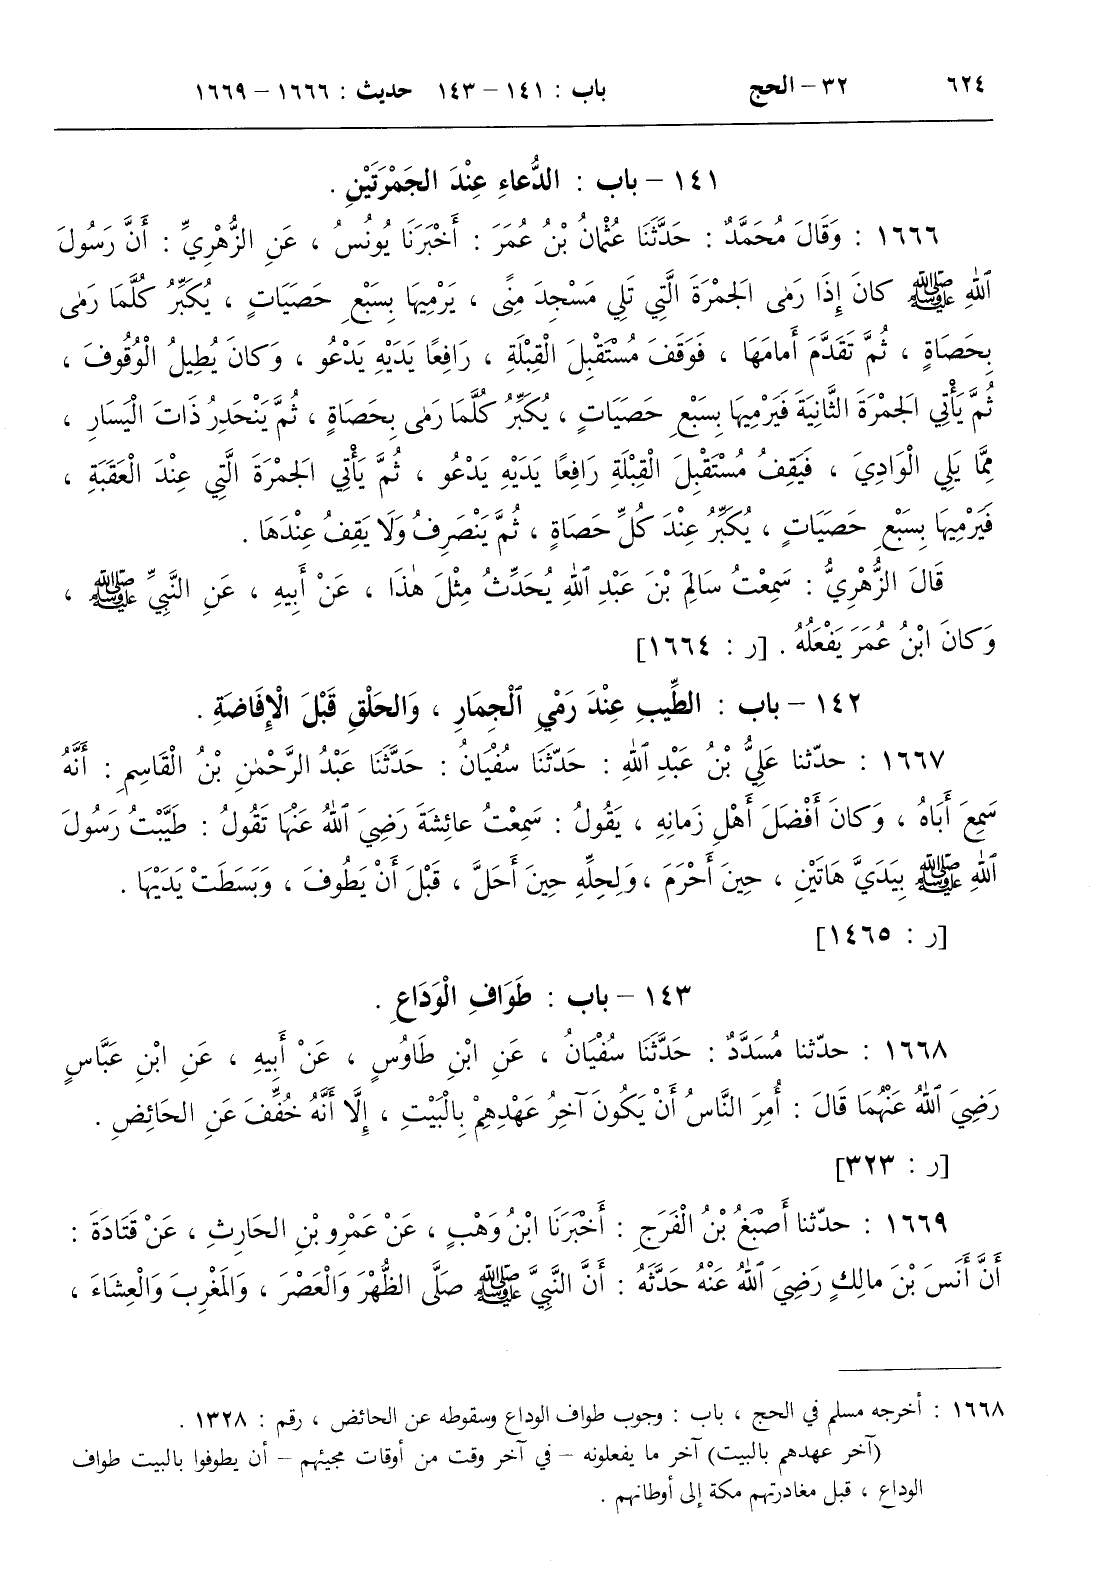 ٦٢٤ ٣٢ – الحج باب : ١٤١ – ١٤٣ حديث : ١٦٦٦ – ١٦٦٩
١٤١ – باب : الدُّعاءِ عِنْدَ الجَمْرَتَيْنِ .
١٦٦٦ : وَقَالَ مُحَمَّدٌ : حَدَّثَنَا عُثْمانُ بْنُ عُمَرَ : أَخْبَرَنَا يُونُسُ ، عَنِ الزُّهْرِيِّ : أَنَّ رَسُولَ
ٱللهِ ﷺ كانَ إِذَا رَمٰى الجَمْرَةَ الَّتِي تَلِي مَسْجِدَ مِنًى ، يَرْمِيهَا بِسَبْعِ حَصَيَاتٍ ، يُكَبِّرُ كُلَّمَا رَمٰى
بِحَصَاةٍ ، ثُمَّ تَقَدَّمَ أَمامَهَا ، فَوَقَفَ مُسْتَقْبِلَ الْقِبْلَةِ ، رَافِعًا يَدَيْهِ يَدْعُو ، وَكانَ يُطِيلُ الْوُقُوفَ ،
ثُمَّ يَأْتِي الجَمْرَةَ الثَّانِيَةَ فَيَرْمِيهَا بِسَبْعِ حَصَيَاتٍ ، يُكَبِّرُ كُلَّمَا رَمٰى بِحَصَاةٍ ، ثُمَّ يَنْحَدِرُ ذَاتَ الْيَسَارِ ،
مِمَّا يَلِي الْوَادِيَ ، فَيَقِفُ مُسْتَقْبِلَ الْقِبْلَةِ رَافِعًا يَدَيْهِ يَدْعُو ، ثُمَّ يَأْتِي الجَمْرَةَ الَّتِي عِنْدَ الْعَقَبَةِ ،
فَيَرْمِيهَا بِسَبْعِ حَصَيَاتٍ ، يُكَبِّرُ عِنْدَ كُلِّ حَصَاةٍ ، ثُمَّ يَنْصَرِفُ وَلَا يَقِفُ عِنْدَهَا .
قَالَ الزُّهْرِيُّ : سَمِعْتُ سَالِمَ بْنَ عَبْدِ ٱللهِ يُحَدِّثُ مِثْلَ هٰذَا ، عَنْ أَبِيهِ ، عَنِ النَّبِيِّ ﷺ ،
وَكانَ ابْنُ عُمَرَ يَفْعَلُهُ . [ر : ١٦٦٤]
١٤٢ – باب : الطِّيبِ عِنْدَ رَمْيِ ٱلْجِمارِ ، وَالحَلْقِ قَبْلَ الْإِفَاضَةِ .
١٦٦٧ : حدّثنا عَلِيُّ بْنُ عَبْدِ ٱللهِ : حَدَّثَنَا سُفْيَانُ : حَدَّثَنَا عَبْدُ الرَّحْمٰنِ بْنُ الْقَاسِمِ : أَنَّهُ
سَمِعَ أَبَاهُ ، وَكانَ أَفْضَلَ أَهْلِ زَمانِهِ ، يَقُولُ : سَمِعْتُ عائِشَةَ رَضِيَ ٱللهُ عَنْهَا تَقُولُ : طَيَّبْتُ رَسُولَ
ٱللهِ ﷺ بِيَدَيَّ هَاتَيْنِ ، حِينَ أَحْرَمَ ، وَلِحِلِّهِ حِينَ أَحَلَّ ، قَبْلَ أَنْ يَطُوفَ ، وَبَسَطَتْ يَدَيْهَا .
[ر : ١٤٦٥]
١٤٣ – باب : طَوَافِ الْوَدَاعِ .
١٦٦٨ : حدّثنا مُسَدَّدٌ : حَدَّثَنَا سُفْيَانُ ، عَنِ ابْنِ طَاوُسٍ ، عَنْ أَبِيهِ ، عَنِ ابْنِ عَبَّاسٍ
رَضِيَ ٱللهُ عَنْهُمَا قَالَ : أُمِرَ النَّاسُ أَنْ يَكُونَ آخِرُ عَهْدِهِمْ بِالْبَيْتِ ، إِلَّا أَنَّهُ خُفِّفَ عَنِ الحَائِضِ .
[ر : ٣٢٣]
١٦٦٩ : حدّثنا أَصْبَغُ بْنُ الْفَرَجِ : أَخْبَرَنَا ابْنُ وَهْبٍ ، عَنْ عَمْرِو بْنِ الحَارِثِ ، عَنْ قَتَادَةَ :
أَنَّ أَنَسَ بْنَ مالِكٍ رَضِيَ ٱللهُ عَنْهُ حَدَّثَهُ : أَنَّ النَّبِيَّ ﷺ صَلَّى الظُّهْرَ وَالْعَصْرَ ، وَالمَغْرِبَ وَالْعِشَاءَ ،
١٦٦٨ : أخرجه مسلم في الحج ، باب : وجوب طواف الوداع وسقوطه عن الحائض ، رقم : ١٣٢٨ .
(آخر عهدهم بالبيت) آخر ما يفعلونه – في آخر وقت من أوقات مجيئهم – أن يطوفوا بالبيت طواف
الوداع ، قبل مغادرتهم مكة إلى أوطانهم .